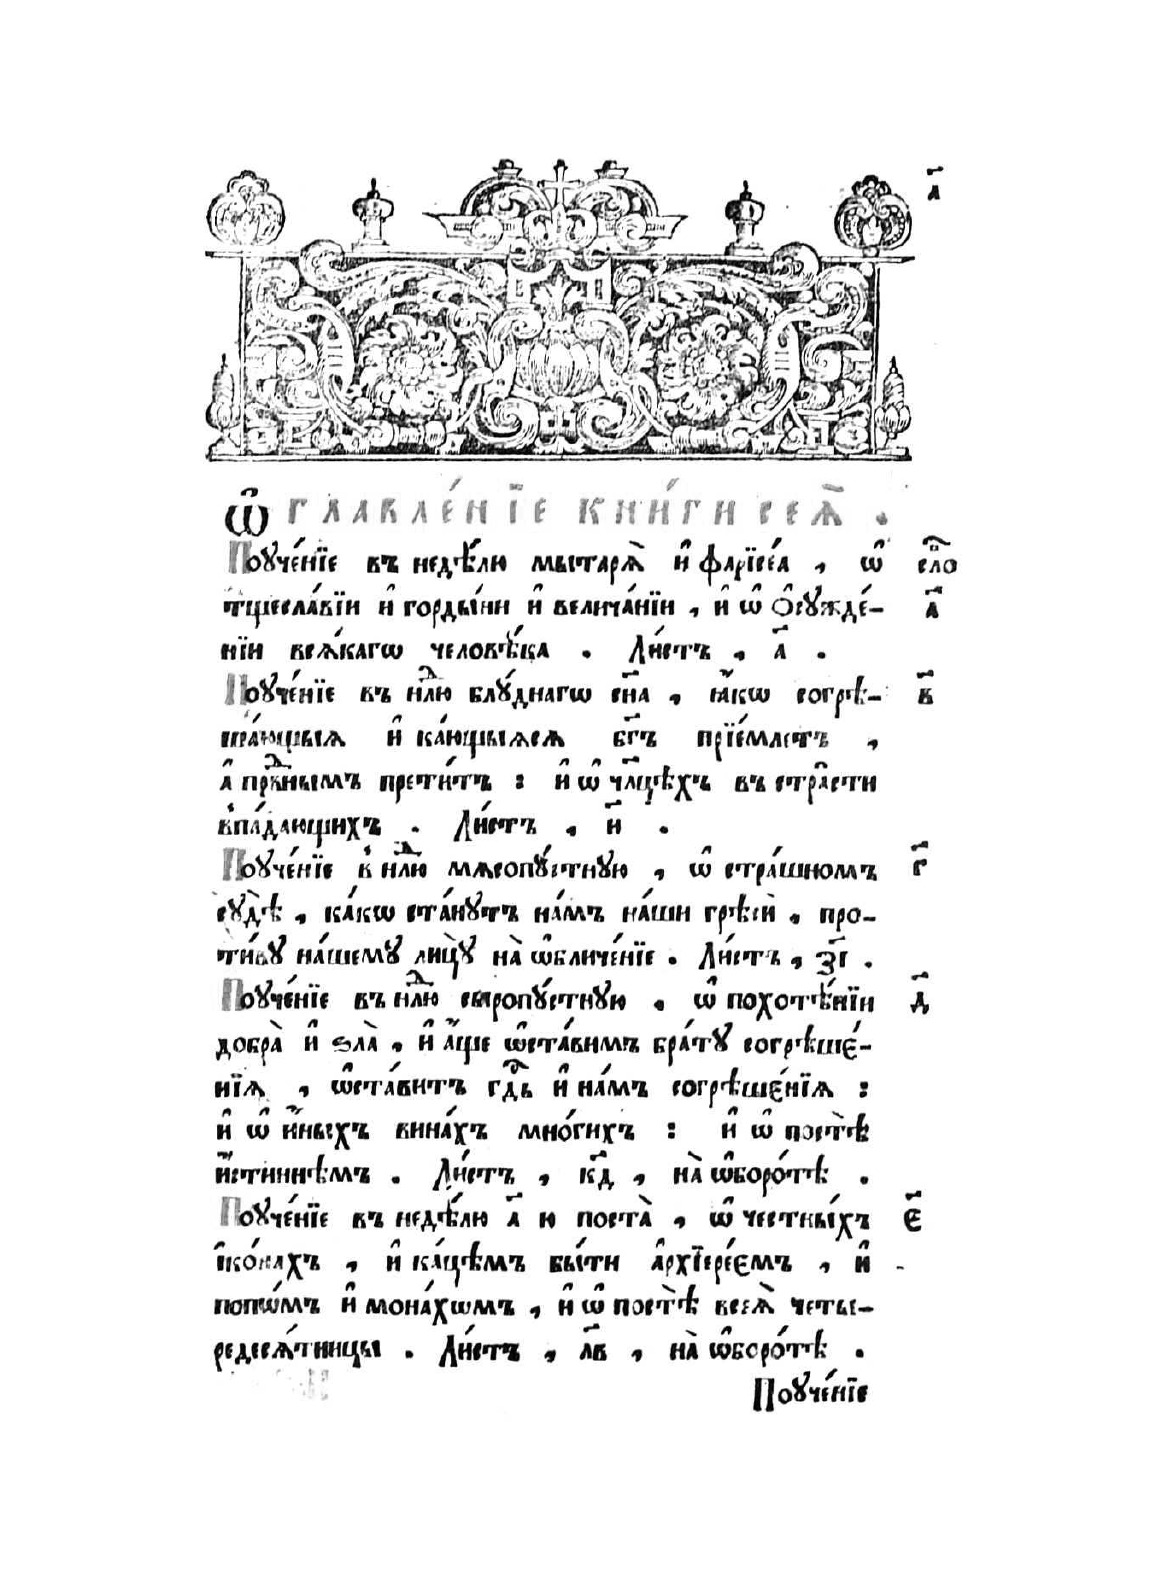 а҃
Ѡ҆главле́нїе кни́ги сеѧ̀ .
Поуче́нїе въ недѣ́лю мытарѧ̀ и҆ фарїсе́а , ѡ҆ сло
тщесла́вїи и҆ горды́ни и҆ велича́нїи , и҆ ѡ҆ Ѻ҆сꙋжде́- а҃
нїи всѧ́кагѡ человѣ́ка . Ли́стъ , а҃ .
Поуче́нїе въ нлⷣю блꙋ́днагѡ сн҃а , ꙗ҆́кѡ согрѣ- в҃
ша́ющыѧ и҆ ка́ющыѧсѧ бг҃ъ прїе́млетъ ,
а҆ прⷣвнымъ прети́тъ : и҆ ѡ҆ чл҃цѣхъ въ стра̑сти
впа́дающихъ . Ли́стъ , и҃ .
Поуче́нїе в̾ нлⷣю мѧсопꙋ́стнꙋю , ѡ҆ стра́шномъ г҃
сꙋдѣ̀ , ка́кѡ ста́нꙋтъ на́мъ на́ши грѣсѝ , про-
ти́вꙋ на́шемꙋ лицꙋ̀ на̀ ѡ҆бличе́нїе . Ли́стъ , з҃і .
Поуче́нїе въ нлⷣю сыропꙋ́стнꙋю . ѡ҆ похотѣ́нїи д҃
добра̀ и҆ ѕла̀ , и҆ а҆́ще ѡ҆ста́вимъ бра́тꙋ согрѣше́-
нїѧ , ѡ҆ста́витъ гдⷭ҇ь и҆ на́мъ согрѣше́нїѧ :
и҆ ѡ҆ и҆́ныхъ вина́хъ мно́гихъ : и҆ ѡ҆ постѣ̀
и҆́стиннѣмъ . Ли́стъ , к҃д , на̀ ѡ҆боро́тѣ .
Поуче́нїе въ недѣ́лю а҃ ю поста̀ , ѡ҆ честны́хъ є҃
і҆ко́нахъ , и҆ ка́цѣмъ бы́ти а҆рхїере́ємъ , и҆
попѡ́мъ и҆ мона́хѡмъ , и҆ ѡ҆ постѣ̀ всеѧ̀ четы-
редесѧ́тницы . Ли́стъ , л҃в , на̀ ѡ҆боро́тѣ .
Поуче́нїе